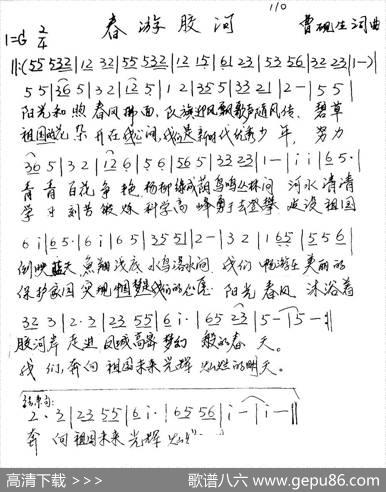 110
春游胶河
1=G 2/4 曹砚生词曲
||:(55 532|12 32|55 532|12 15|61 23|53 56|32 23|1-)|
5 5|36 5|3 2|12 6|5 1 2|35 5|33 21|2-|5 5|
阳光和煦 春风拂面、队旗迎风飘歌声随风传、碧草
祖国的花朵 开在我心间,我们是新时代优秀少年,努力
36 5|3 2|12 6|5 6|56 5|33 23|1-|i i|6 5·|
青青百花争艳 杨柳 成荫鸟鸣丛林间 河水清清
学习 刻苦锻炼 科学高峰勇于去登攀 建设祖国
6 i|6 5·|6 i|6 5|35 5|2-|3 2|1 65|5 56|
倒映蓝天 鱼翔浅底 水鸟 水间 我们 畅游在美丽的
保护家园 实现中国梦是我们的心愿 阳光春风 沐浴着
32 3|2·3|23 55|6 i·|65 23|5-|5-:||
胶河岸 走进 凤城高密梦幻 般的春 天。
我们奔向 祖国未来光辉 灿烂的明天。
结束句:
2·3|23 55|6 i·|65 56|i-|i-||
奔 向祖国未来 光辉 灿烂
高清下载 >>>
歌谱八六 www.gepu86.com